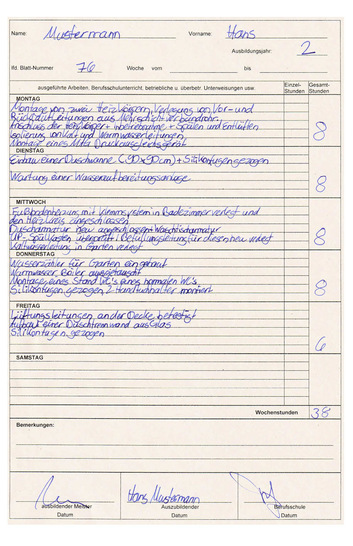 Name: Mustermann Vorname: Hans
Ausbildungsjahr: 2
lfd. Blatt-Nummer 76 Woche vom bis
ausgeführte Arbeiten, Berufsschulunterricht, betriebliche u. überbetr. Unterweisungen usw. Einzel-Stunden Gesamt-Stunden
MONTAG
Montage von zwei Heizkörpern, Verlegung von Vor- und
Rücklaufleitungen aus Mehrschichtverbundrohr,
Anschluss der Heizkörper + Inbetriebnahme + Spülen und Entlüften
Isolierung von Kalt und Warmwasserleitungen 8
Montage eines MAG Druckausgleichsgerät
DIENSTAG
Einbau einer Duschwanne (90x90cm) + Silikonfugen gezogen
Wartung einer Wasseraufbereitungsanlage
8
MITTWOCH
Fußbodenheizung mit Klemmsystem in Badezimmer verlegt und
den Heizkreis angeschlossen
Duscharmatur neu angeschlossen Waschtischarmatur
Spülkasten überprüft Befüllungsleitung für diesen neu verlegt 8
Kaltwasserleitung in Garten verlegt
DONNERSTAG
Wasserzähler für Garten eingebaut
Warmwasser Boiler ausgetauscht
Montage eines Stand WC's eines normalen WC's 8
Silikonfugen gezogen 2 Handtuchhalter montiert
FREITAG
Lüftungsleitungen an der Decke befestigt
Aufbau einer Duschtrennwand aus Glas
Silikonfugen gezogen
6
SAMSTAG
Wochenstunden 38
Bemerkungen:
Hans Mustermann
ausbildender Meister Auszubildender Berufsschule
Datum Datum Datum